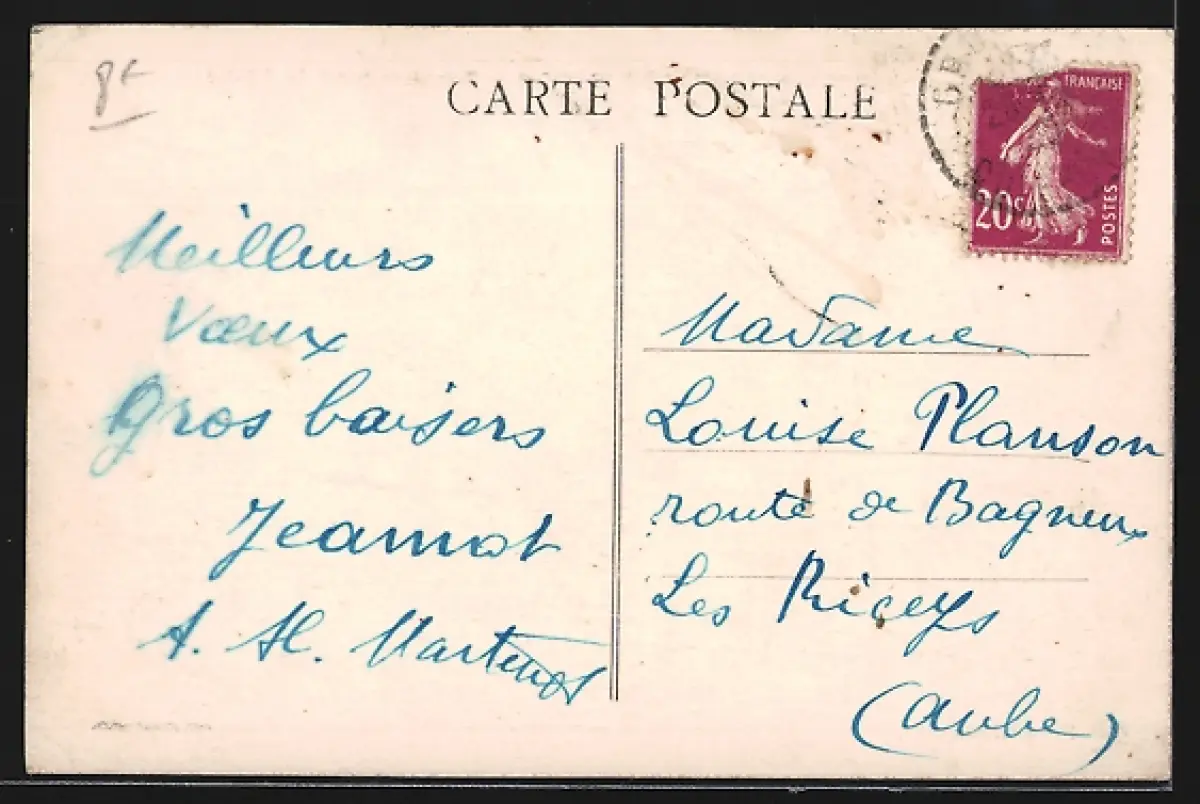 8F
CARTE POSTALE
FRANÇAISE
20 c.
POSTES
Meilleurs
Vœux
Gros baisers
Jeannot
A. M. Martenot
Madame
Louise Planson
route de Bagneux
Les Riceys
(Aube)